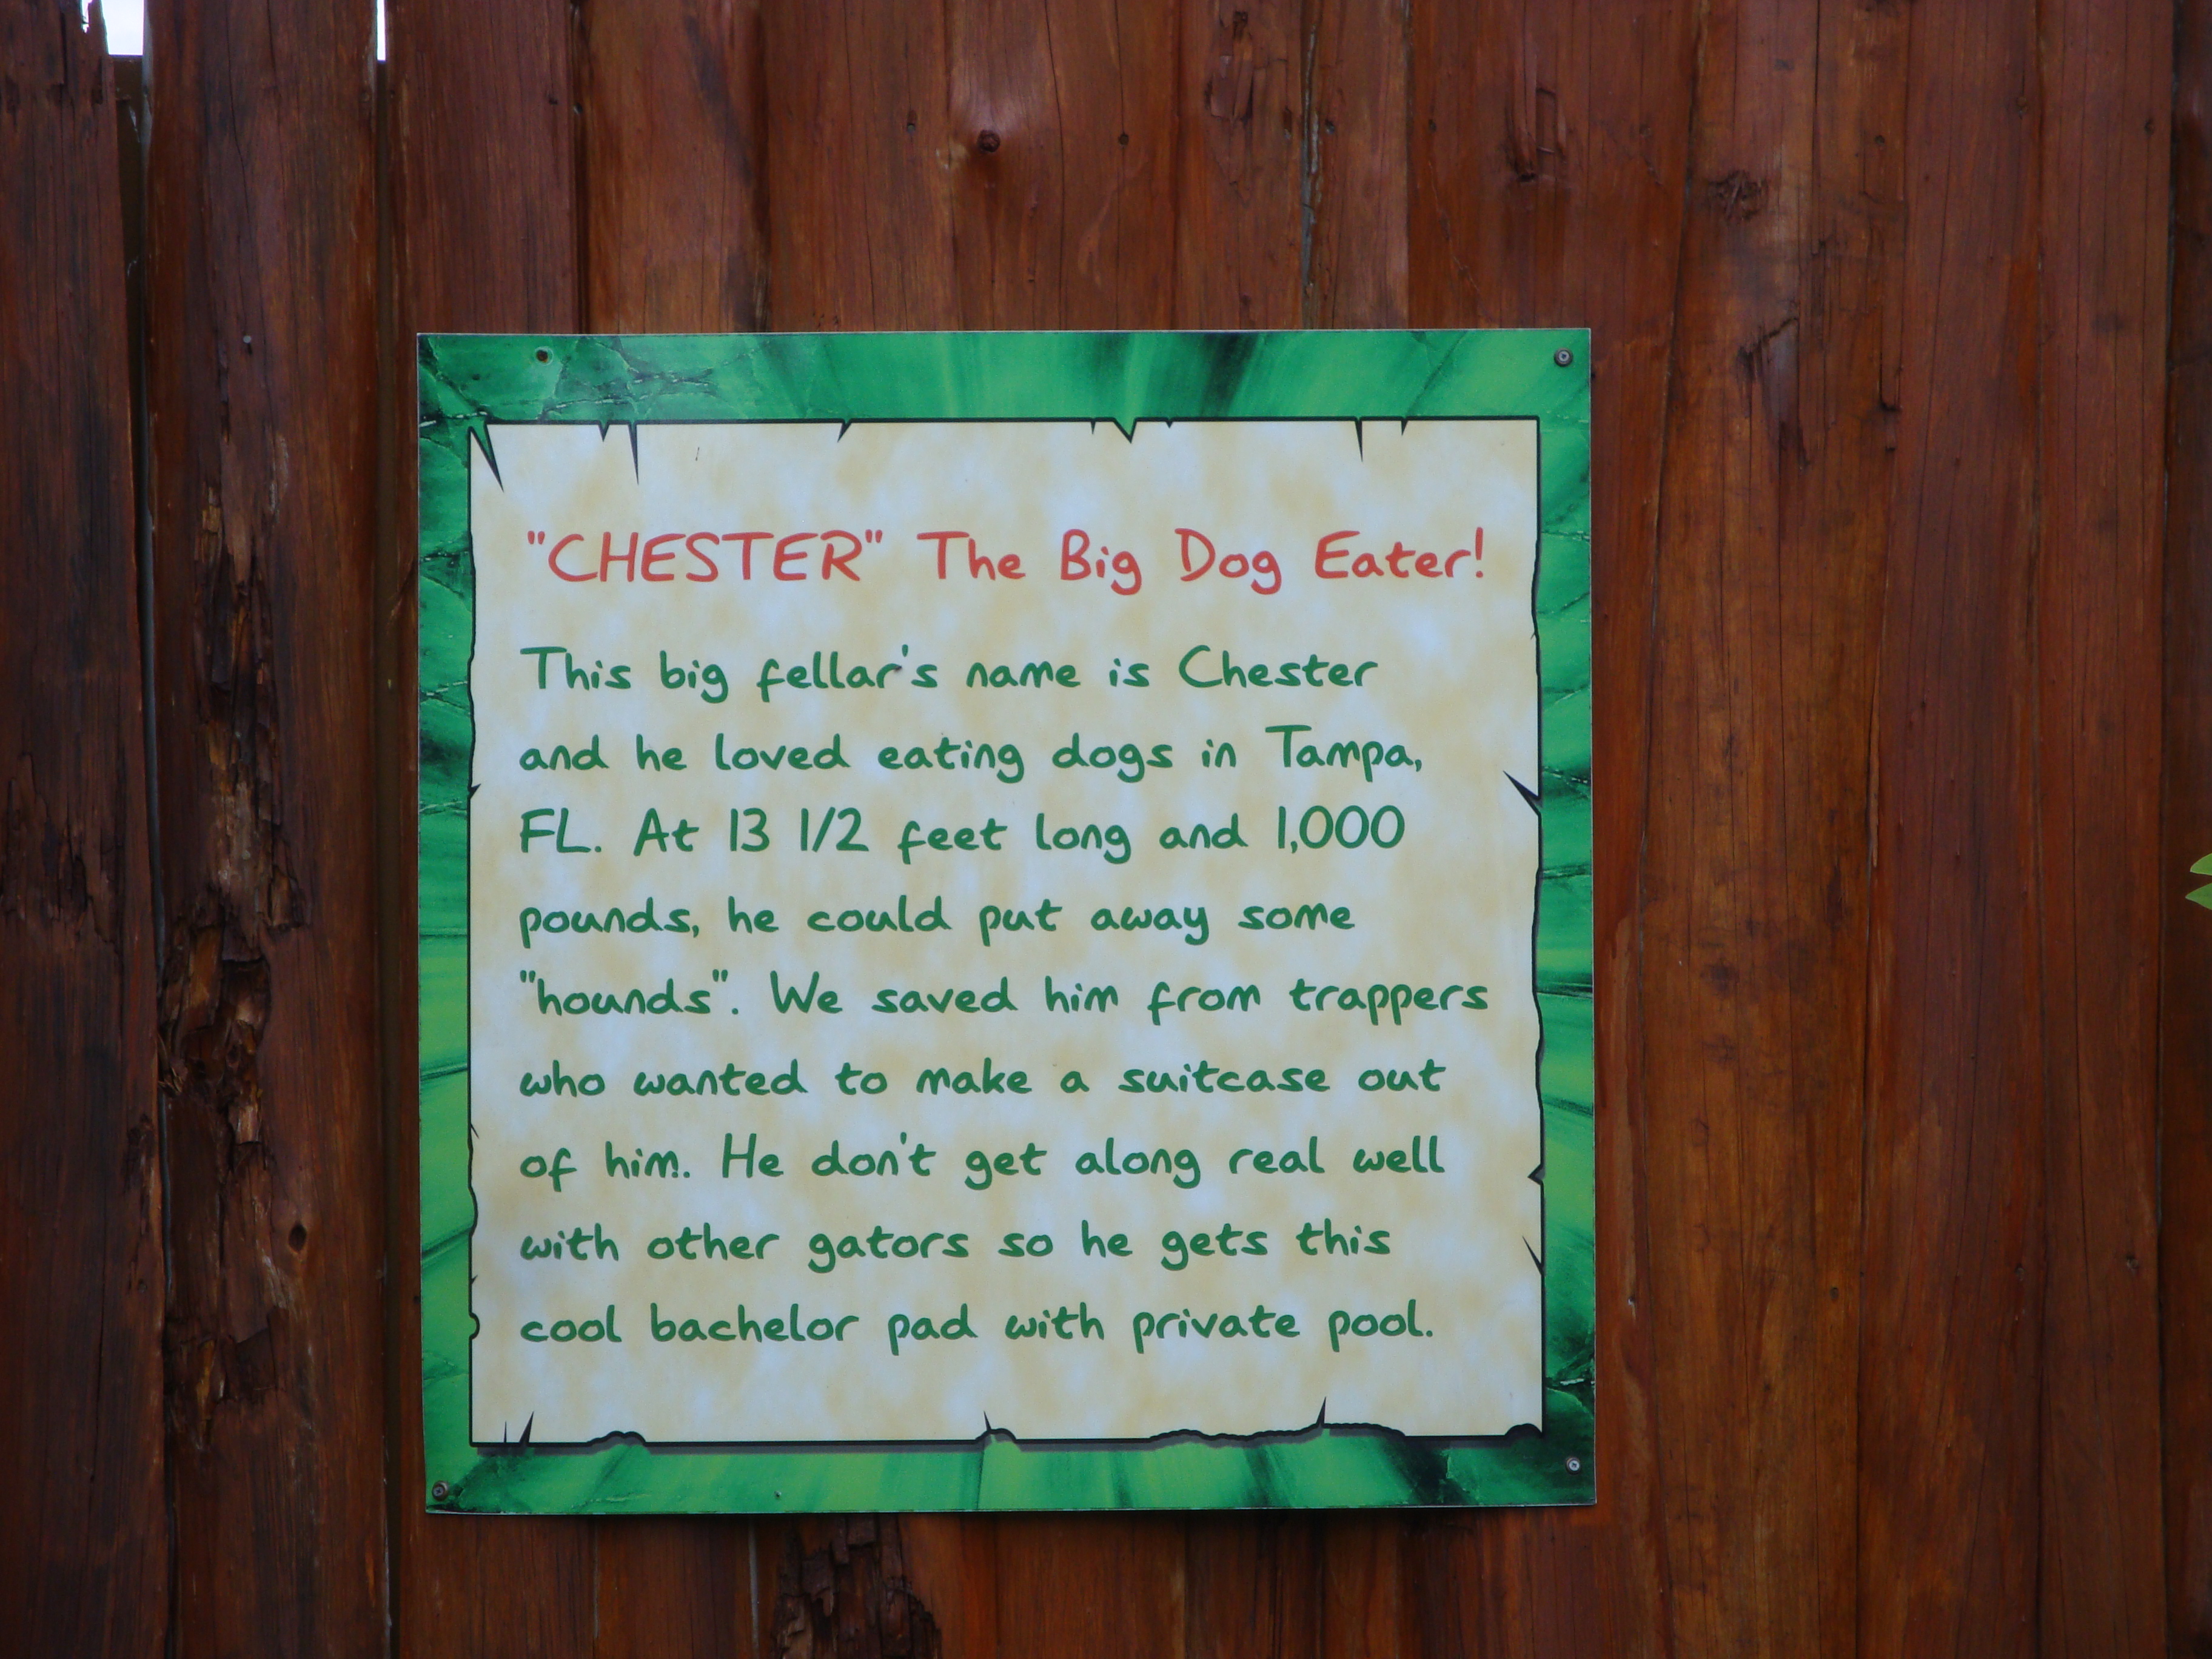 "CHESTER" The Big Dog Eater!
This big fellar's name is Chester
and he loved eating dogs in Tampa,
FL. At 13 1/2 feet long and 1,000
pounds, he could put away some
"hounds". We saved him from trappers
who wanted to make a suitcase out
of him.. He don't get along real well
with other gators so he gets this
cool bachelor pad with private pool.